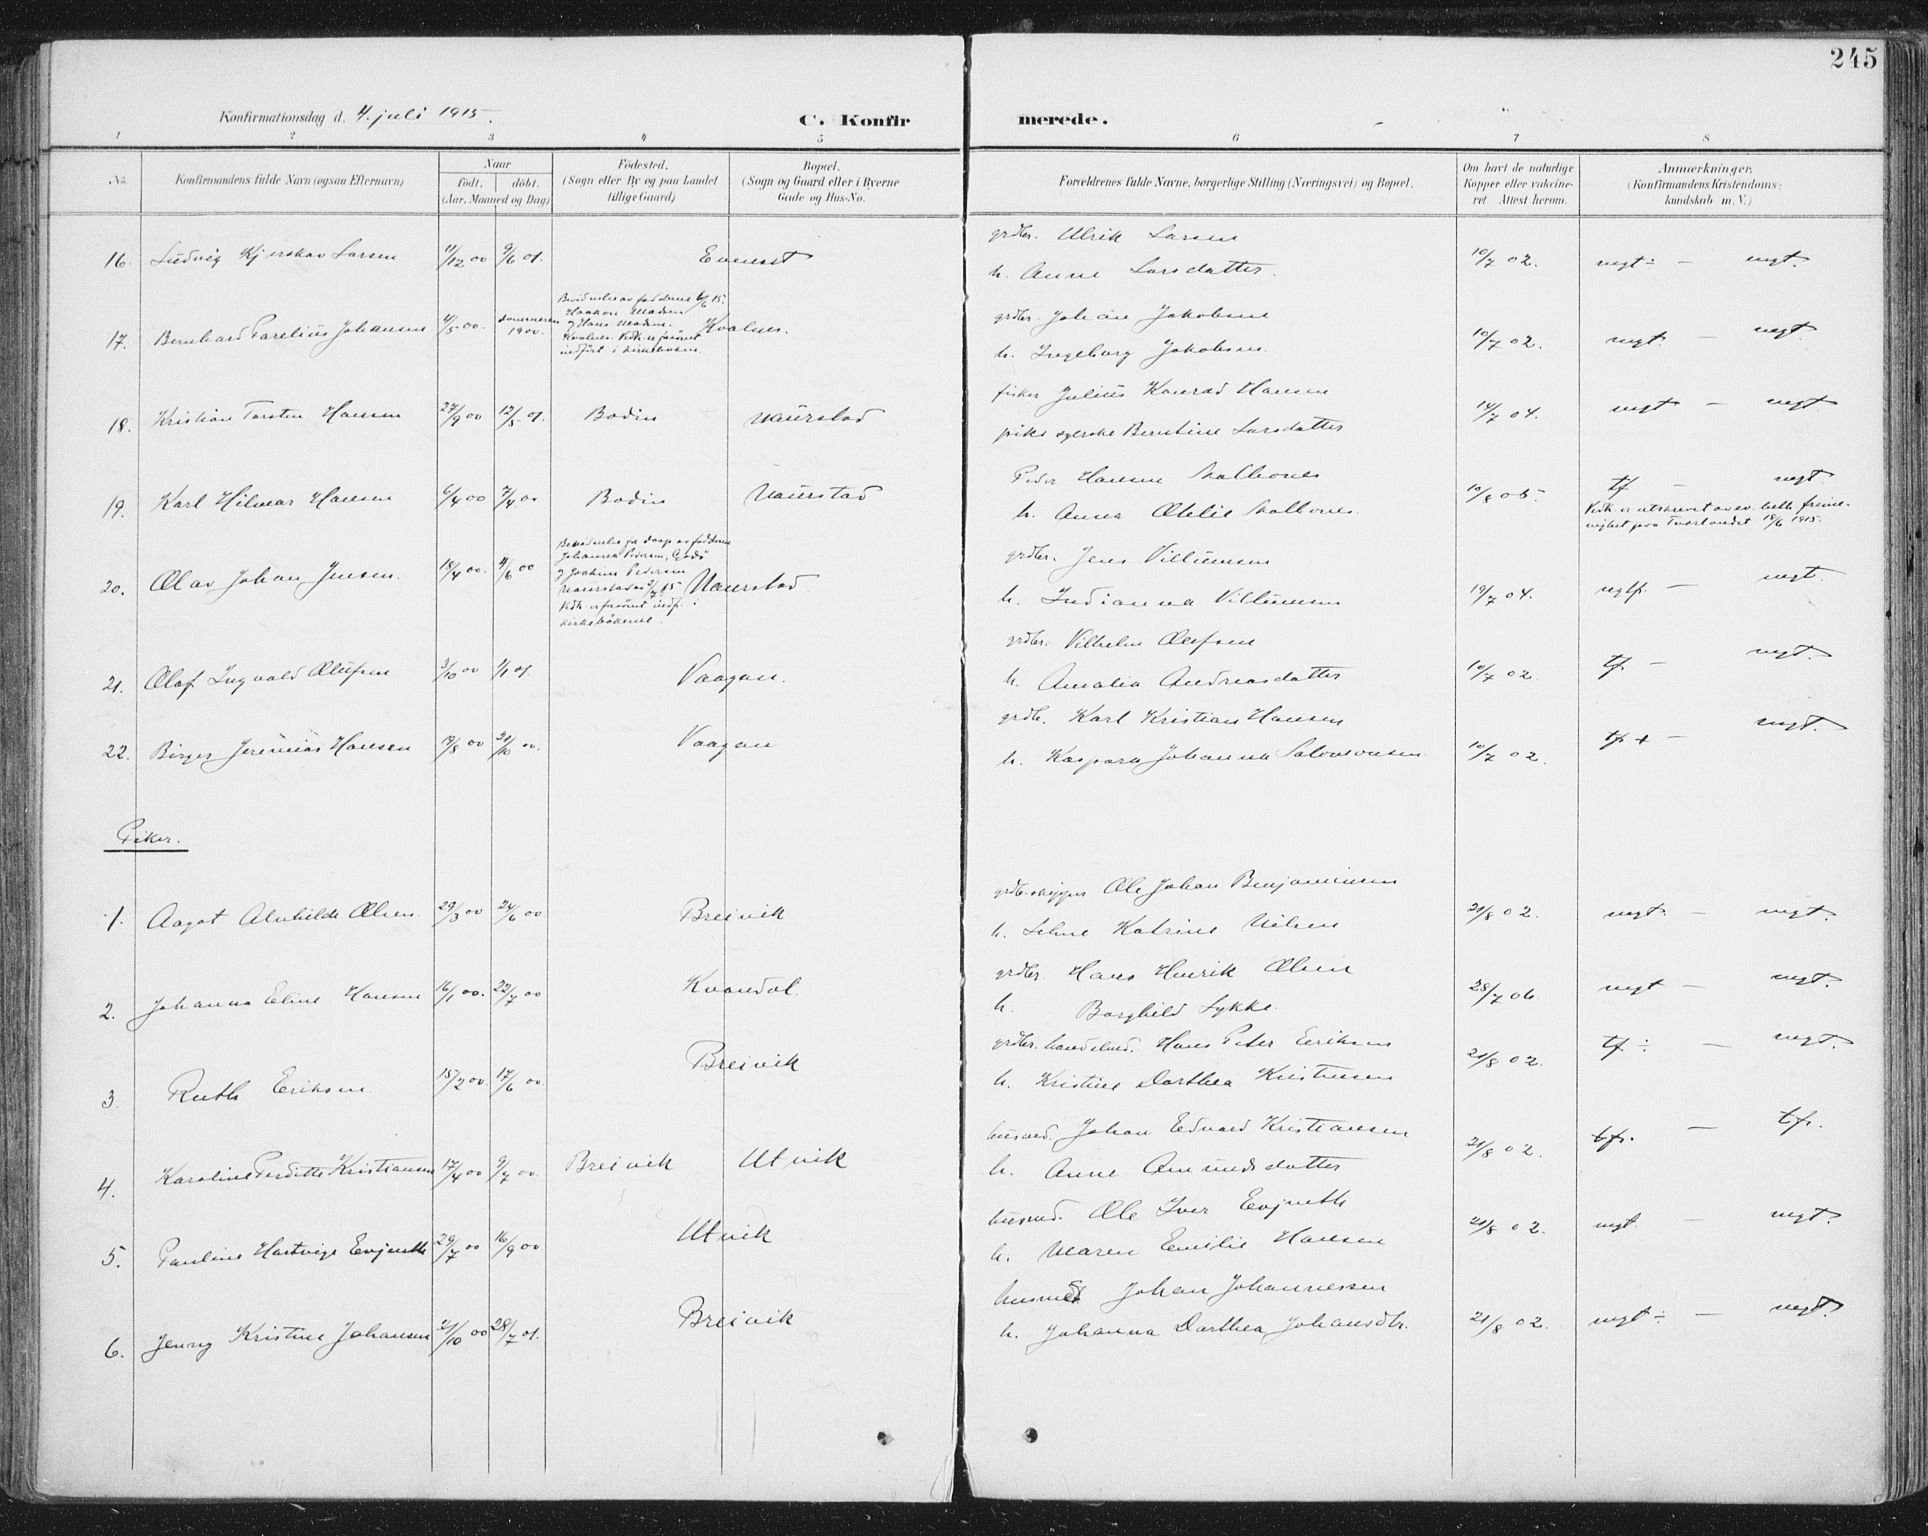 245
Konfirmationsdag d. 4. juli 1915.
C. Konfirmerede.
1 2 3 4 5 6 7 8
No.
Konfirmandens fulde Navn (ogsaa Efternavn)
Naar
født, døbt.
(Aar, Maaned og Dag)
Fødested.
(Sogn eller By og paa Landet
tillige Gaard)
Bopæl.
(Sogn og Gaard eller i Byerne
Gade og Hus-No.
Forældrenes fulde Navne, borgerlige Stilling (Næringsvei) og Bopæl.
Om havt de naturlige
Kopper eller vakcine-
ret Attest herom.
Anmærkninger.
(Konfirmandens Kristendoms-
kundskab m. V.)
16. Ludvig Kjerskov Larsen 11/12 00 9/6 01. Evenset
grdbr. Ulrik Larsen
h. Anne Larsdatter. 10/7 02. mgt ÷ — mgt.
17. Bernhard Parelius Johansen 4/5 00. sommeren 1900. Kvalnes.
Haakon Madsen
og Hans Madsen
Kvalnes.
indført i kirkeboken.
grdbr. Johan Jakobsen
h. Ingeborg Jakobsen. 10/7 02. mgt. — mgt.
18. Kristian Torsten Hansen 27/9 00 12/5 01. Bodin Naurstad
fisker Julius Konrad Hansen
pike syerske Berntine Larsdatter 14/7 04. mgt — mgt.
19. Karl Hilmar Hansen 6/4 00 7/4 00 Bodin Naurstad
Peder Hansen
h. Anna Otelie 10/8 05. tf — mgt
20. Olav Johan Jensen. 18/4 00. 4/6 00 Naurstad.
Johannes Pedersen, Godø
og Joakim Pedersen
Naurstad
kirkebøkerne.
grdbr. Jens Villumsen
h. Indianna Villumsen 19/7 04. mgtf. — mgt.
21. Olaf Ingvald Olufsen 3/10 00 1/1 01. Vaagan.
grdbr. Vilhelm Olufsen
h. Amalia Andreasdatter 10/7 02. tf. — mgt.
22. Birger Jeremias Hansen 19/8 00 21/10 00. Vaagan
grdbr. Karl Kristian Hansen
h. Kaspara Johanna Salomonsen. 10/7 02. tf + — mgt.
Piker.
1. Aagot Alvhilde Olsen. 29/3 00 24/6 00. Breivik
grdbr. skipper Ole Johan Benjaminsen
h. Katrine Nilsen 21/8 02. mgt. — mgt.
2. Johanna Eline Hansen 16/1 00. 22/7 00 Kvandal.
grdbr. Hans Henrik Olsen
h. Borghild Lykke. 28/7 06. mgt — mgt.
3. Ruth Eriksen 15/2 00. 17/6 00. Breivik
grdbr. handelsm. Hans Peter Eriksen
h. Kristine Dorthea Kristensen 21/8 02. tf ÷ — mgt.
4. Karoline Perditte Kristiansen 17/4 00 9/7 00. Breivik Utvik
husmd. Johan Edvard Kristiansen
h. Anne Amundsdatter 21/8 02. tf. — tf.
5. Pauline Hartvige Evjenth 29/7 00 16/9 00 Utvik
husmd. Ole Iver Evjenth
h. Maren Emilie Hansen 21/8 02. mgt. — mgt.
6. Jenny Kristine Johansen 21/10 00 28/7 01. Breivik
husmd Johan Johannessen
h. Johanna Dorthea Johansdtr. 21/8 02. mgt ÷ — mgt.